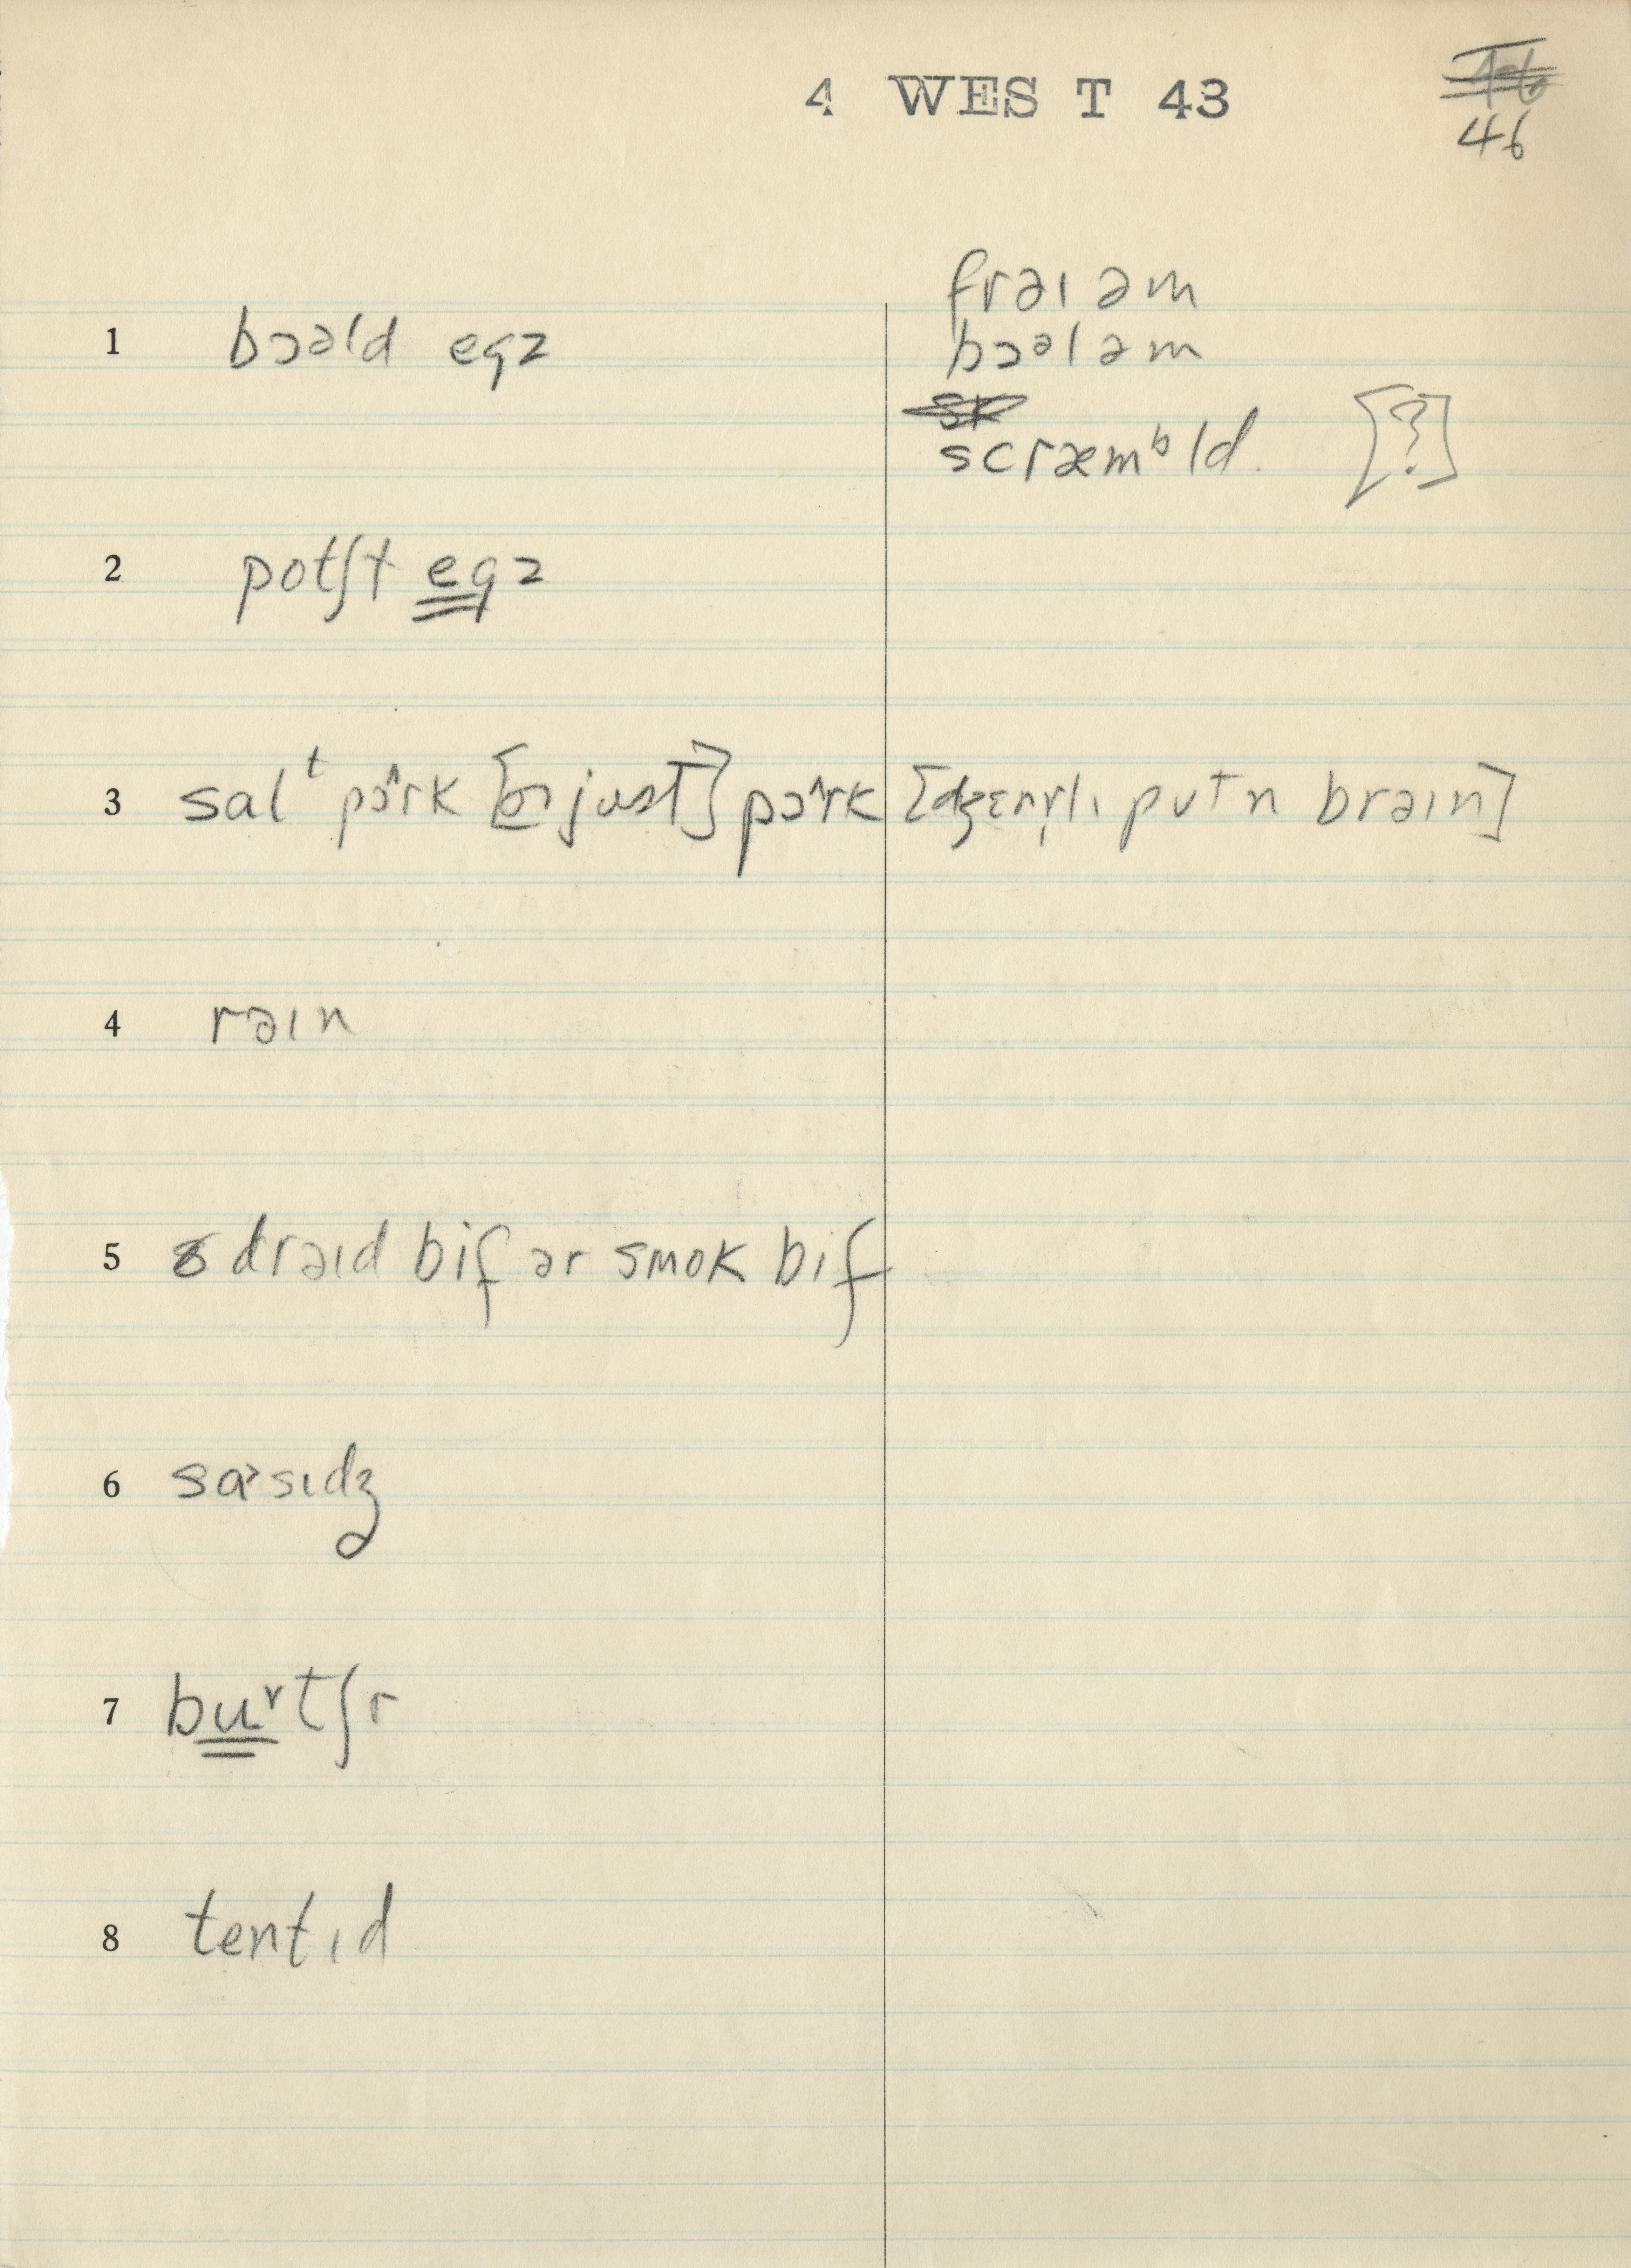 4 WEST 43
46
1 bɔəld egz
fraɪ əm
bɔəl əm
scræmᵇld. [?]
2 potʃt egz
3 salᵗ pɔ˄rk [or just] pɔ˄rk [dʒɛnrlɪ pʊt n braɪn]
4 rəɪn
5 drəɪd bif ər smok bif
6 sɑ˃sɪdʒ
7 bu˅tʃr
8 tentɪd